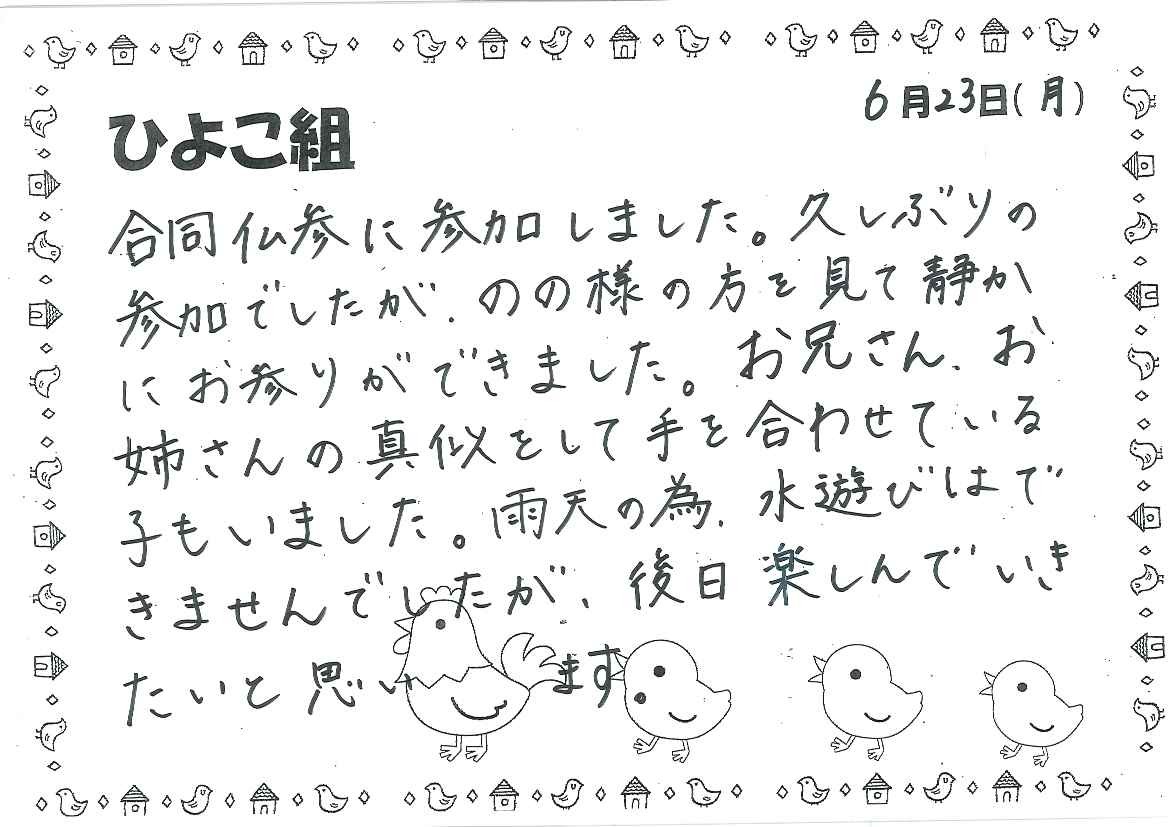 6月23日(月)
ひよこ組
合同仏参に参加しました。久しぶりの
参加でしたが、のの様の方を見て静か
にお参りができました。お兄さん、お
姉さんの真似をして手を合わせている
子もいました。雨天の為、水遊びはで
きませんでしたが、後日楽しんでいき
たいと思います。